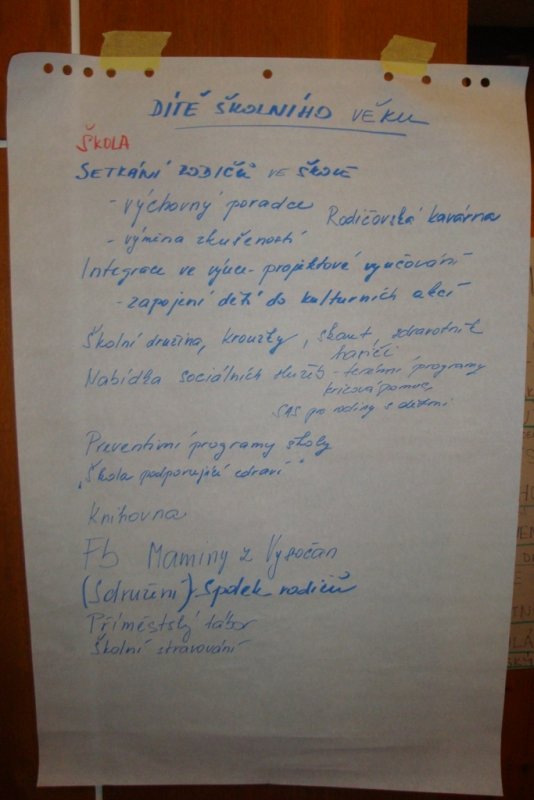 DÍTĚ ŠKOLNÍHO VĚKU
ŠKOLA
SETKÁNÍ RODIČŮ VE ŠKOLE
- výchovný poradce
Rodičovská kavárna
- výměna zkušeností
Integrace ve výuce - projektové vyučování
- zapojení dětí do kulturních akcí
Školní družina, kroužky, skaut, zdravotník
hasiči
Nabídka sociálních služeb - terénní programy
krizová pomoc,
SAS pro rodiny s dětmi
Preventivní programy školy
"Škola podporující zdraví"
Knihovna
Fb Maminy z Vysočan
(Sdružení) - Spolek rodičů
Příměstský tábor
Školní stravování